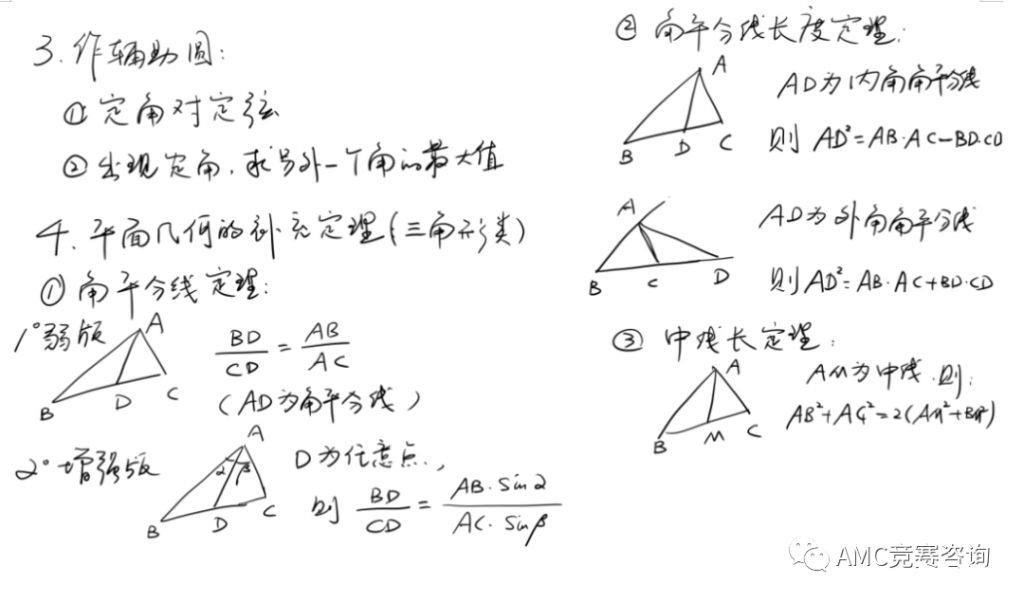 3. 作辅助圆:
① 定角对定弦
② 出现定角, 求另外一个角的最大值
4. 平面几何的补充定理(三角形类)
① 角平分线定理:
1° 弱版
A
B
D
C
BD/CD = AB/AC
(AD为角平分线)
2° 增强版
A
α β
B
D
C
D为任意点,
则 BD/CD = AB·sinα/AC·sinβ
② 角平分线长度定理:
A
B
D
C
AD为内角角平分线
则 AD²=AB·AC-BD·CD
A
B
C
D
AD为外角角平分线
则 AD²=AB·AC+BD·CD
③ 中线长定理:
A
B
M
C
AM为中线, 则:
AB²+AC²=2(AM²+BM²)
AMC竞赛咨询